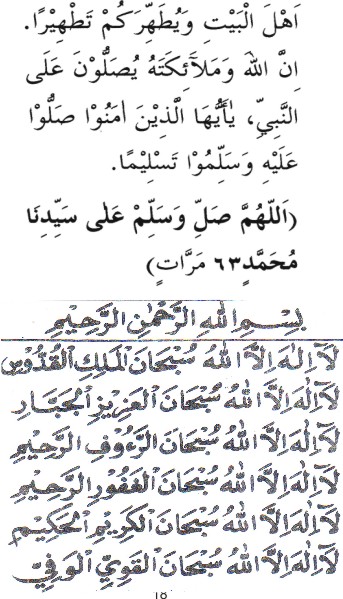 اَهْلَ الْبَيْتِ وَيُطَهِّرَكُمْ تَطْهِيْرًا.
اِنَّ اللهَ وَمَلَآئِكَتَهُ يُصَلُّوْنَ عَلَى
النَّبِيِّ، يٰأَيُّهَا الَّذِيْنَ اٰمَنُوْا صَلُّوْا
عَلَيْهِ وَسَلِّمُوْا تَسْلِيْمًا.
(اَللّٰهُمَّ صَلِّ وَسَلِّمْ عَلٰى سَيِّدِنَا
مُحَمَّدٍ ٦٣ مَرَّاتٍ)
بِسْمِ اللهِ الرَّحْمٰنِ الرَّحِيْمِ
لَآ اِلٰهَ اِلَّا اللهُ سُبْحَانَ الْمَلِكِ الْقُدُّوْسِ
لَآ اِلٰهَ اِلَّا اللهُ سُبْحَانَ الْعَزِيْزِ الْجَبَّارِ
لَآ اِلٰهَ اِلَّا اللهُ سُبْحَانَ الرَّءُوْفِ الرَّحِيْمِ
لَآ اِلٰهَ اِلَّا اللهُ سُبْحَانَ الْغَفُوْرِ الرَّحِيْمِ
لَآ اِلٰهَ اِلَّا اللهُ سُبْحَانَ الْكَرِيْمِ الْحَكِيْمِ
لَآ اِلٰهَ اِلَّا اللهُ سُبْحَانَ الْقَوِيِّ الْوَفِيِّ
18